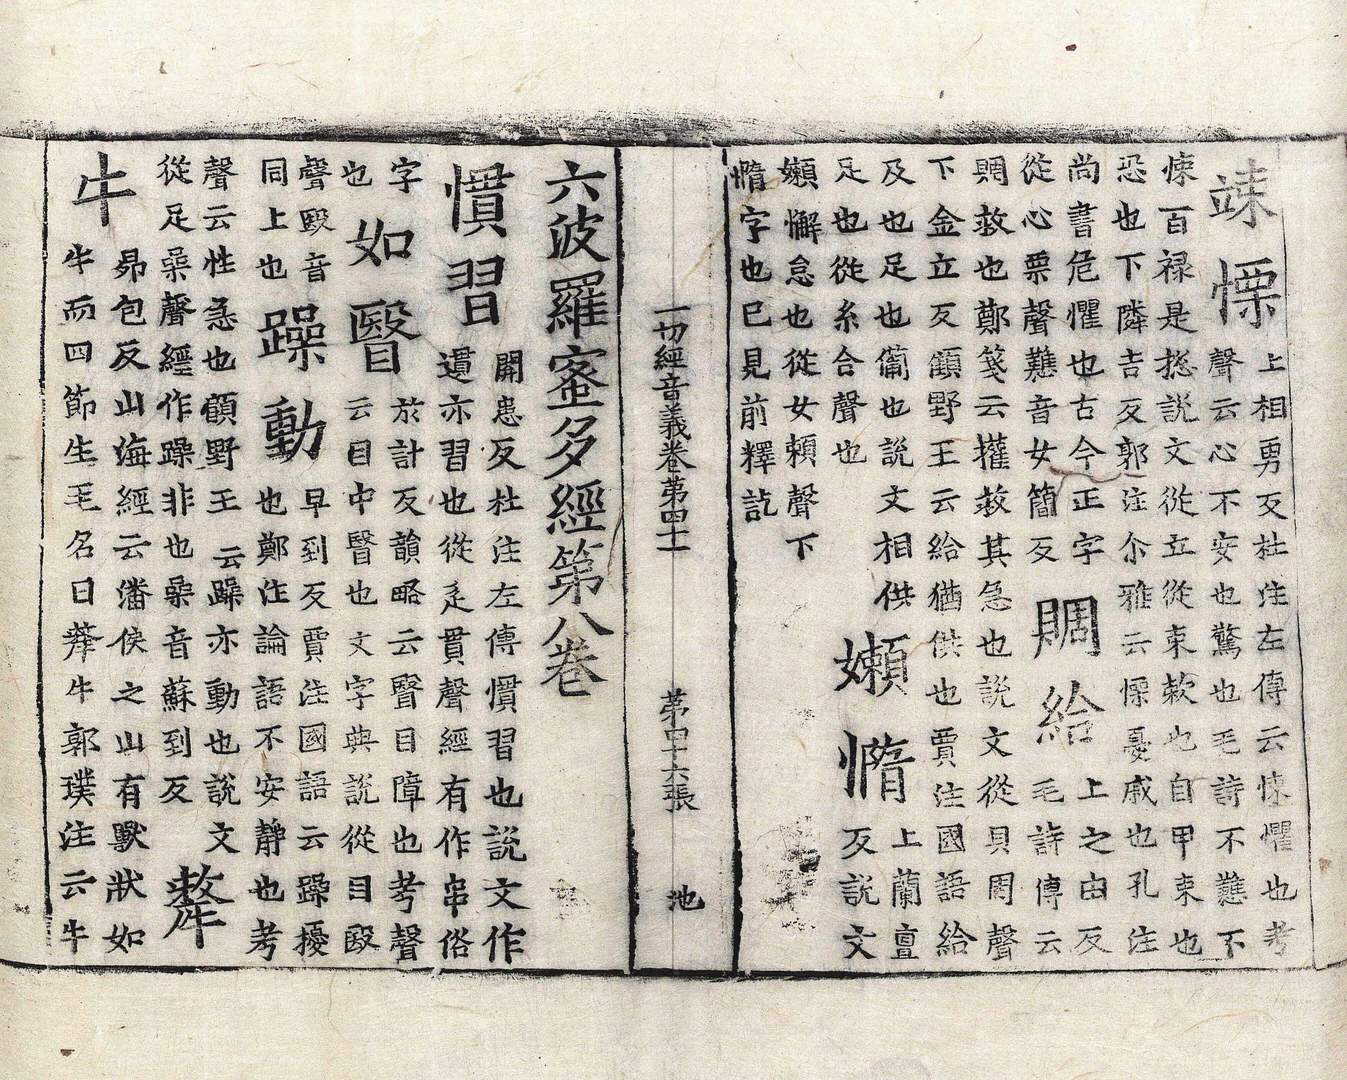 竦慄
上相勇反杜注左傳云悚懼也考
聲云心不安也驚也毛詩不戁不
悚百禄是捴說文從立從束敕也自申束也
恐也下隣吉反郭注尒雅云慄憂戚也孔注
尚書危懼也古今正字
從心票聲戁音女簡反
賙給
上之由反
毛詩傳云
賙救也鄭箋云權救其急也說文從貝周聲
下金立反顧野王云給猶供也賈注國語給
及也足也備也說文相供
足也從糸合聲也
嬾惰
上蘭亶
反說文
嬾懈怠也從女賴聲下
惰字也已見前釋訖
一切經音義卷第四十一
第四十六張
池
六波羅蜜多經第八卷
慣習
開患反杜注左傳慣習也說文作
遺亦習也從辵貫聲經有作串俗
字
也
如瞖
於計反韻略云瞖目障也考聲
云目中瞖也文字典說從目殹
聲殹音
同上也
躁動
早到反賈注國語云躁擾
也鄭注論語不安靜也考
聲云性急也顧野王云躁亦動也說文
從足喿聲經作躁非也喿音蘇到反
犛
牛
昴包反山海經云潘侯之山有獸狀如
牛而四節生毛名曰犛牛郭璞注云牛